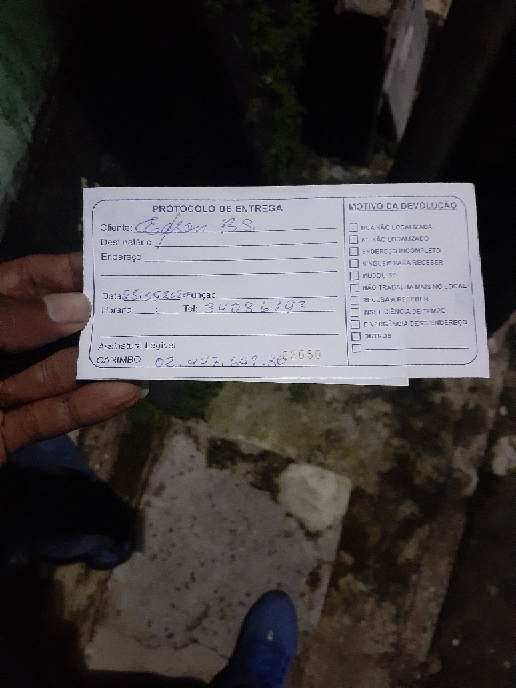 PROTOCOLO DE ENTREGA
Cliente: Edson BS.
Destinatário:
Endereço
Data Função:
Horário : Tel: 34086193
Assinatura Legível
CARIMBO
MOTIVO DA DEVOLUÇÃO
RUA NÃO LOCALIZADA
Nº NÃO LOCALIZADO
ENDEREÇO INCOMPLETO
NINGUÉM PARA RECEBER
MUDOU-SE
NÃO TRABALHA MAIS NO LOCAL
RECUSA A RECEBER
INSUFICIÊNCIA DE TEMPO
DIVERGÊNCIA DESTE ENDEREÇO
OUTROS